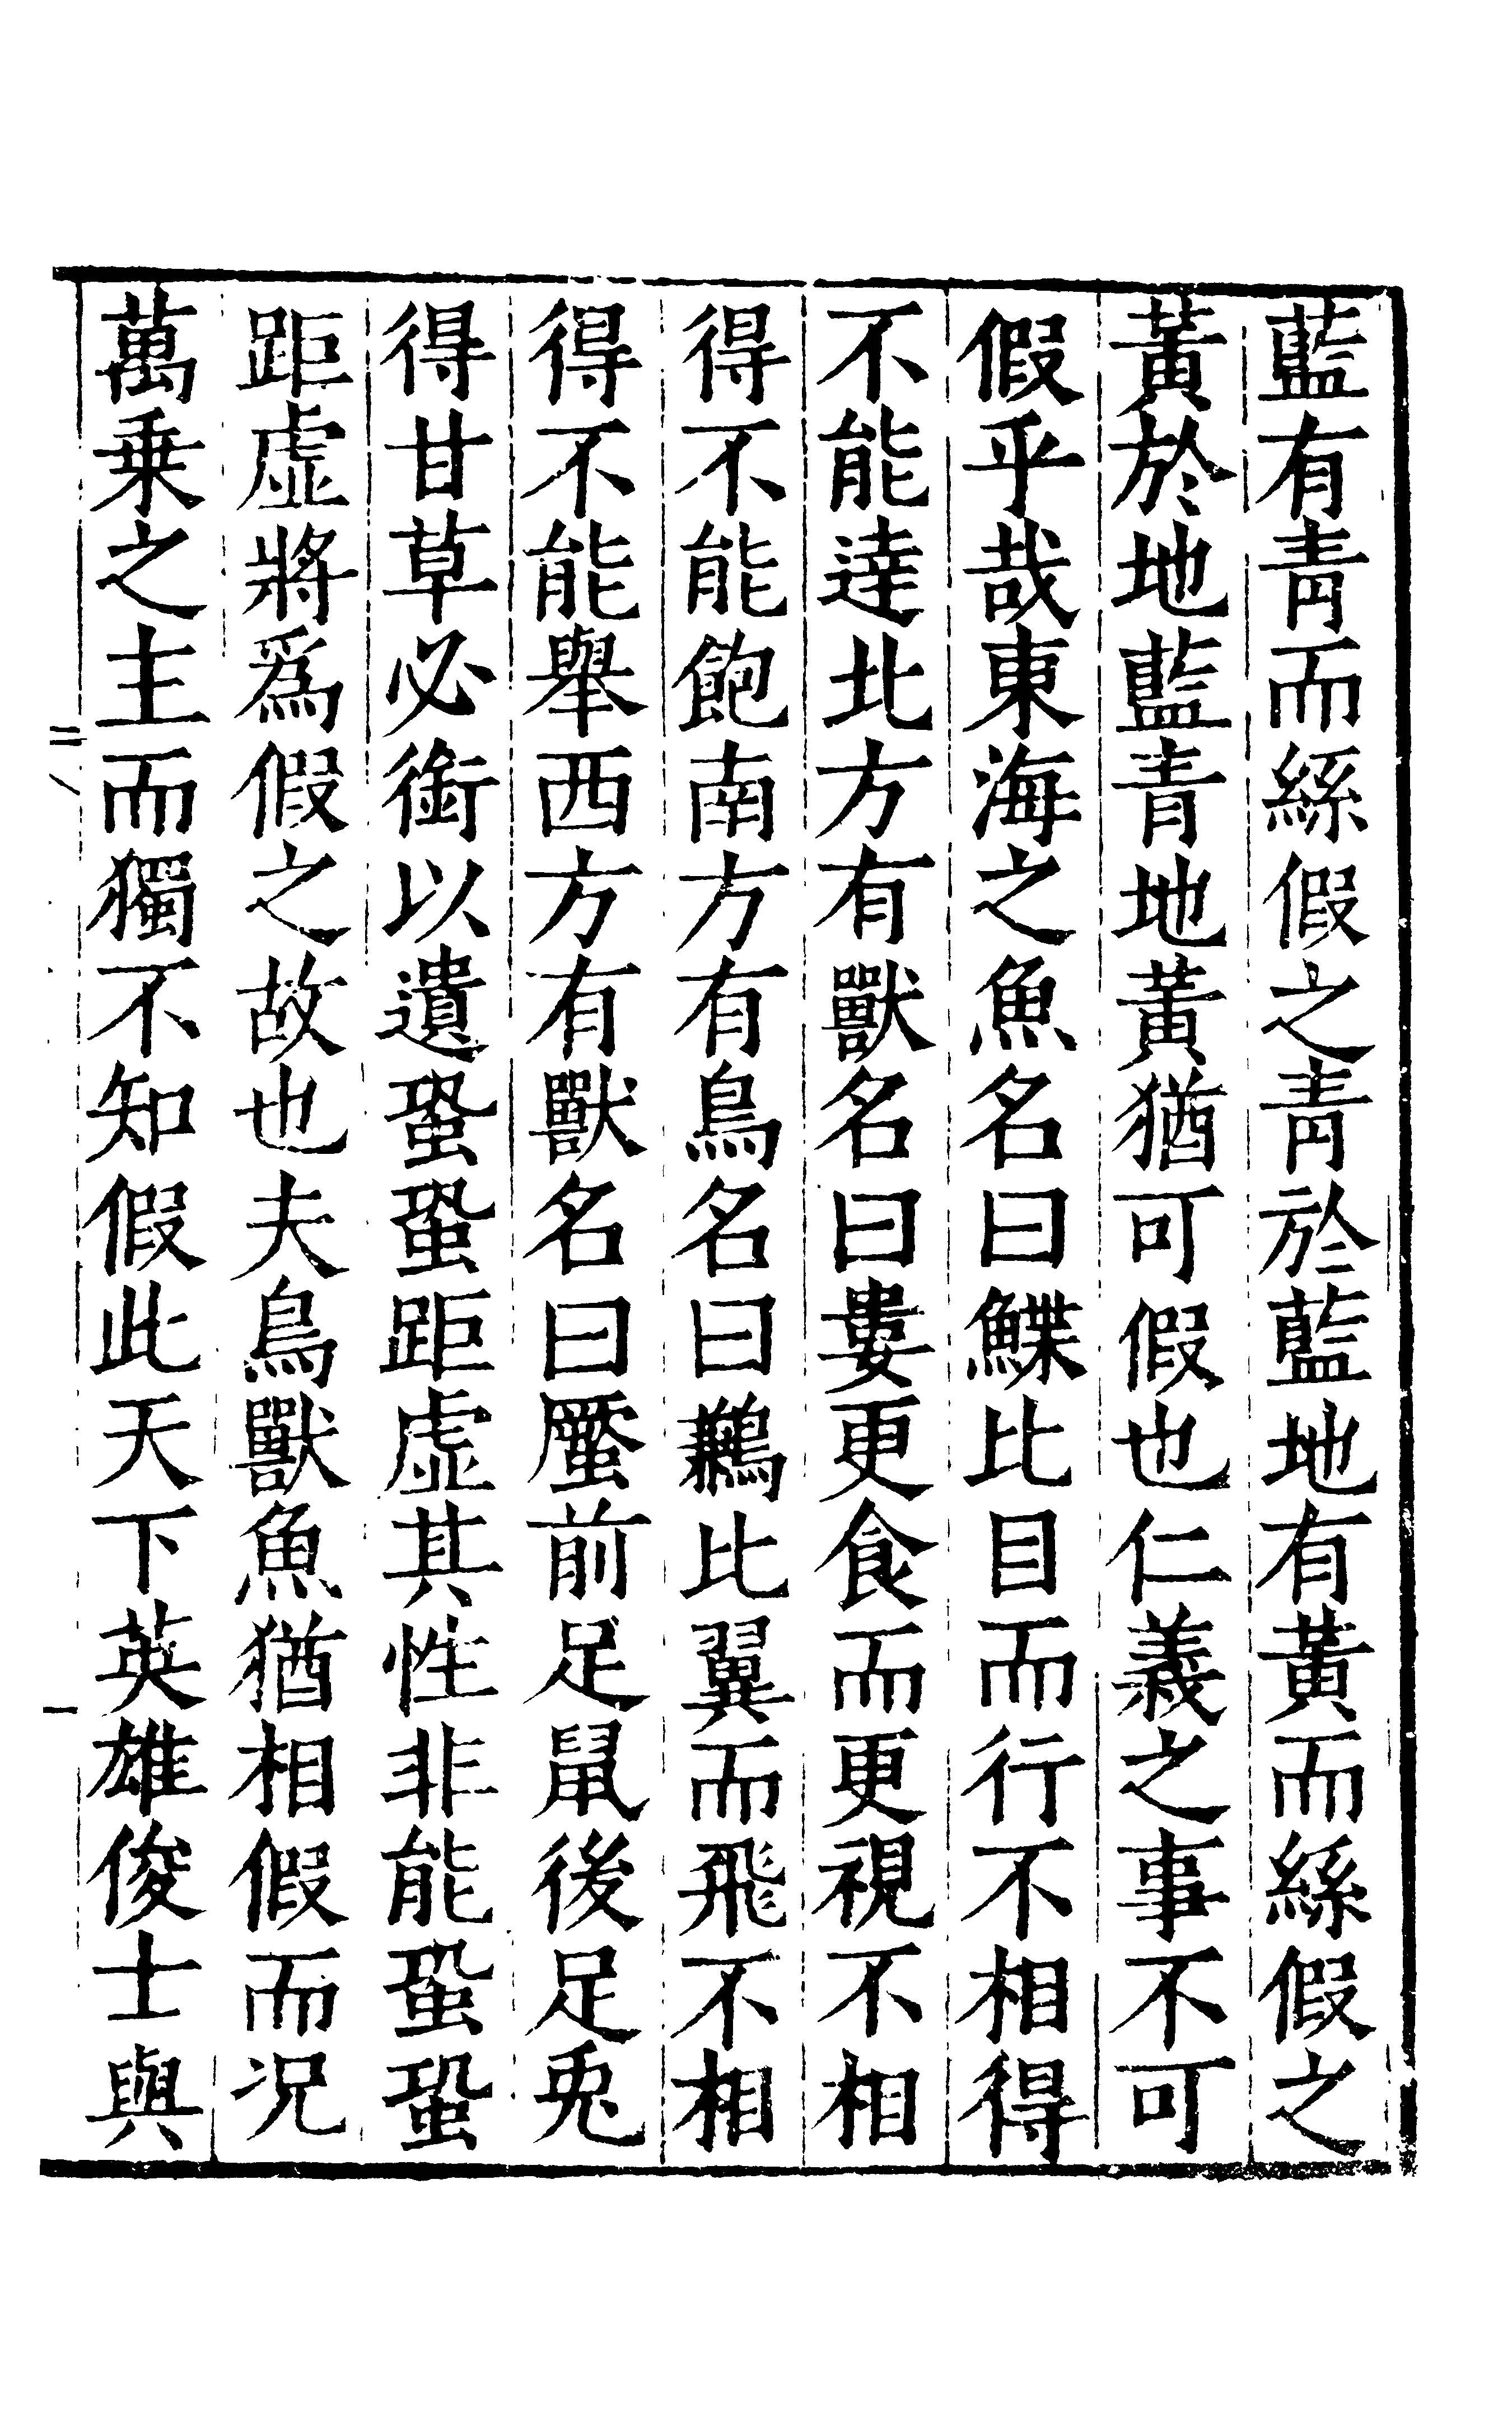 藍有青而絲假之青於藍地有黃而絲假之
黃於地藍青地黃猶可假也仁義之事不可
假乎哉東海之魚名曰鰈比目而行不相得
不能達北方有獸名曰婁更食而更視不相
得不能飽南方有鳥名曰鶼比翼而飛不相
得不能舉西方有獸名曰蟨前足鼠後足兎
得甘草必銜以遺蛩蛩距虛其性非能蛩蛩
距虛將爲假之故也夫鳥獸魚猶相假而况
萬乗之主而獨不知假此天下英雄俊士與